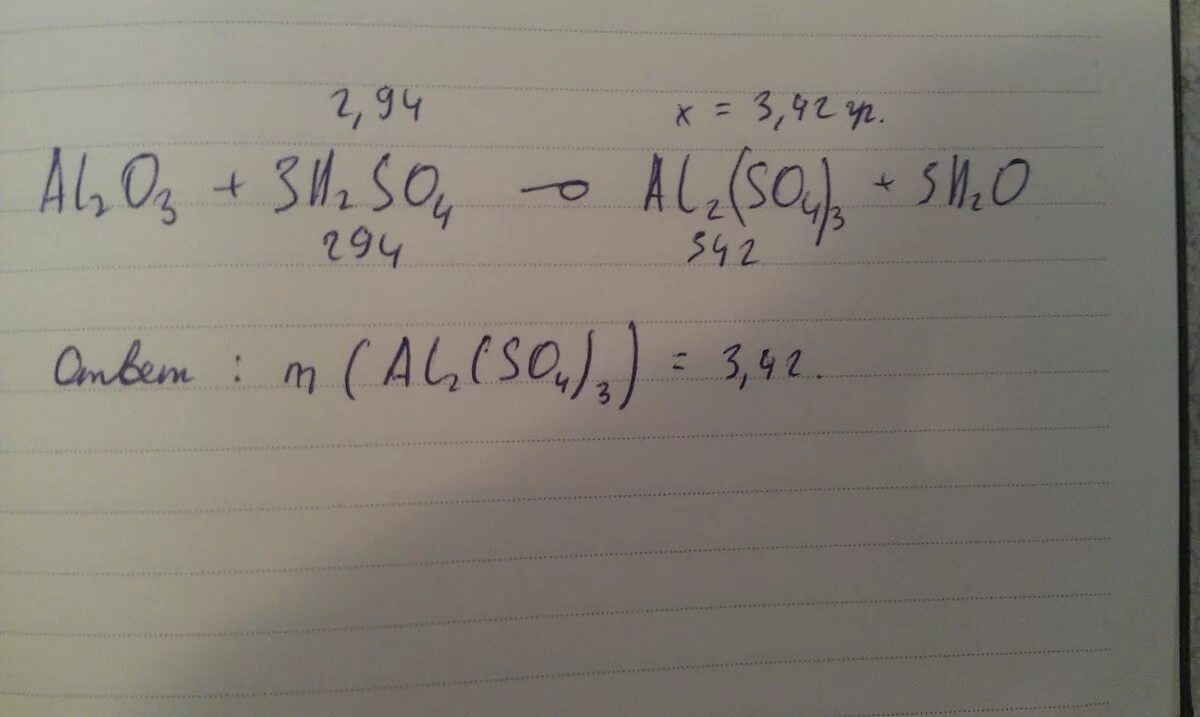 2,94 x = 3,42 гр.
Al₂O₃ + 3H₂SO₄ → Al₂(SO₄)₃ + 3H₂O
294 342
Ответ : m (Al₂(SO₄)₃) = 3,42.